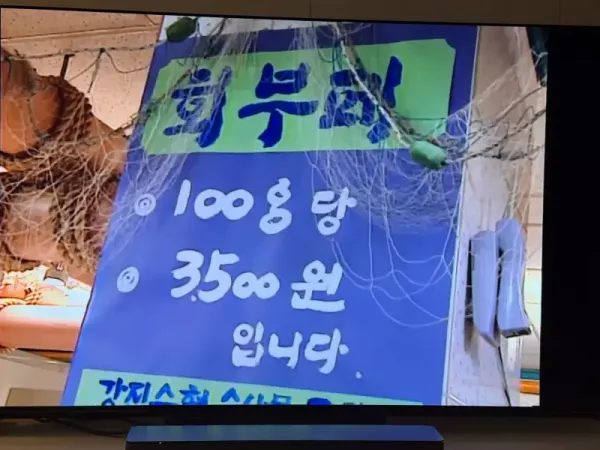 회부페
◎ 100g당
◎ 3,500원
입니다.